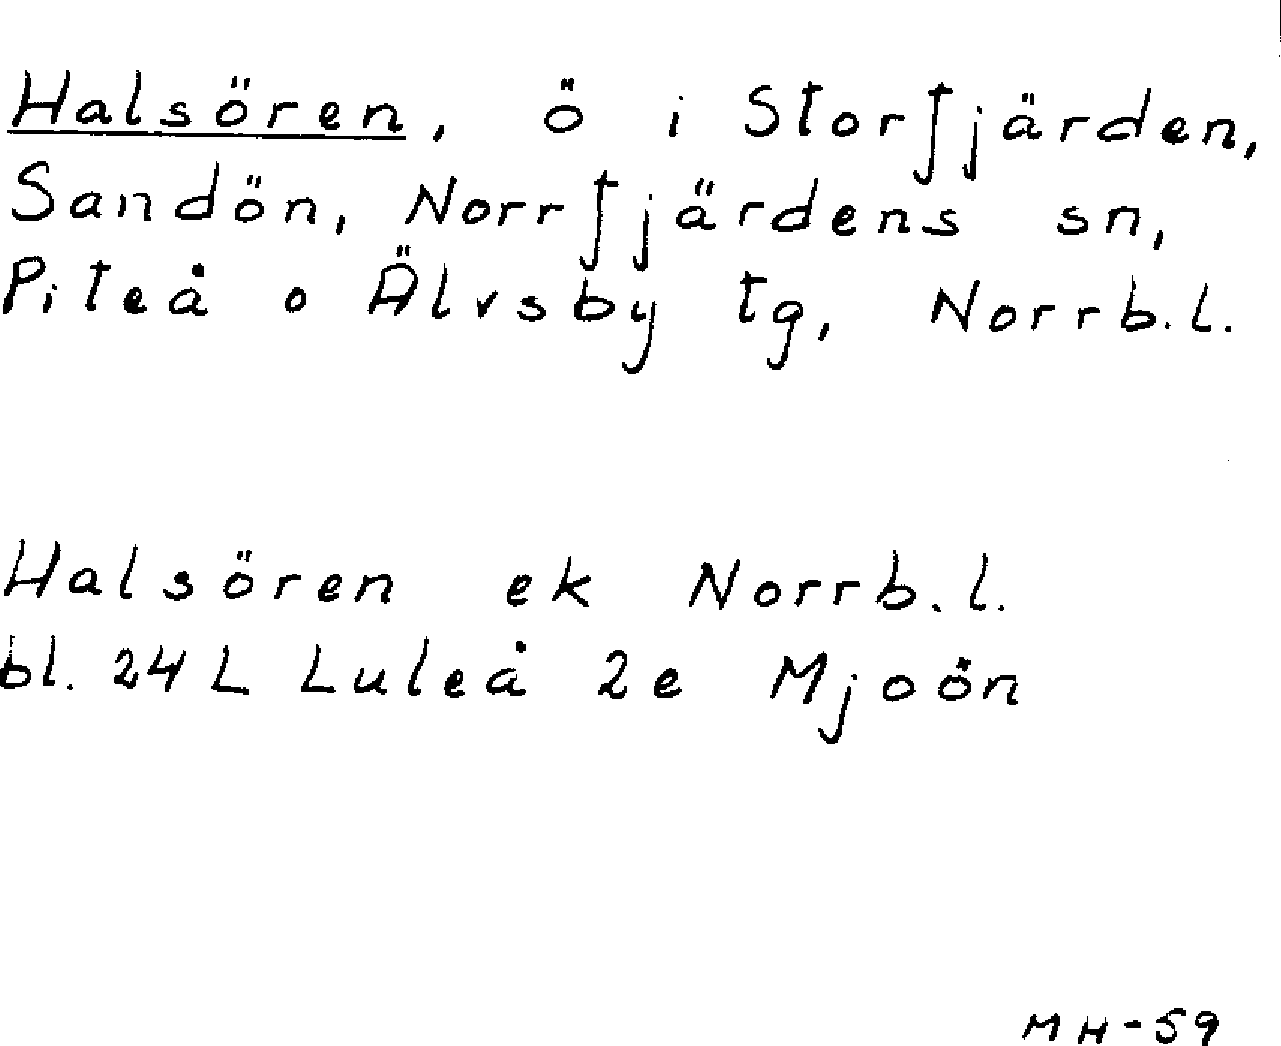 Halsören, ö i Storfjärden,
Sandön, Norrfjärdens sn,
Piteå o Älvsby tg, Norrb.l.
Halsören ek Norrb.l.
bl. 24 L Luleå 2e Mjoön
MH-59